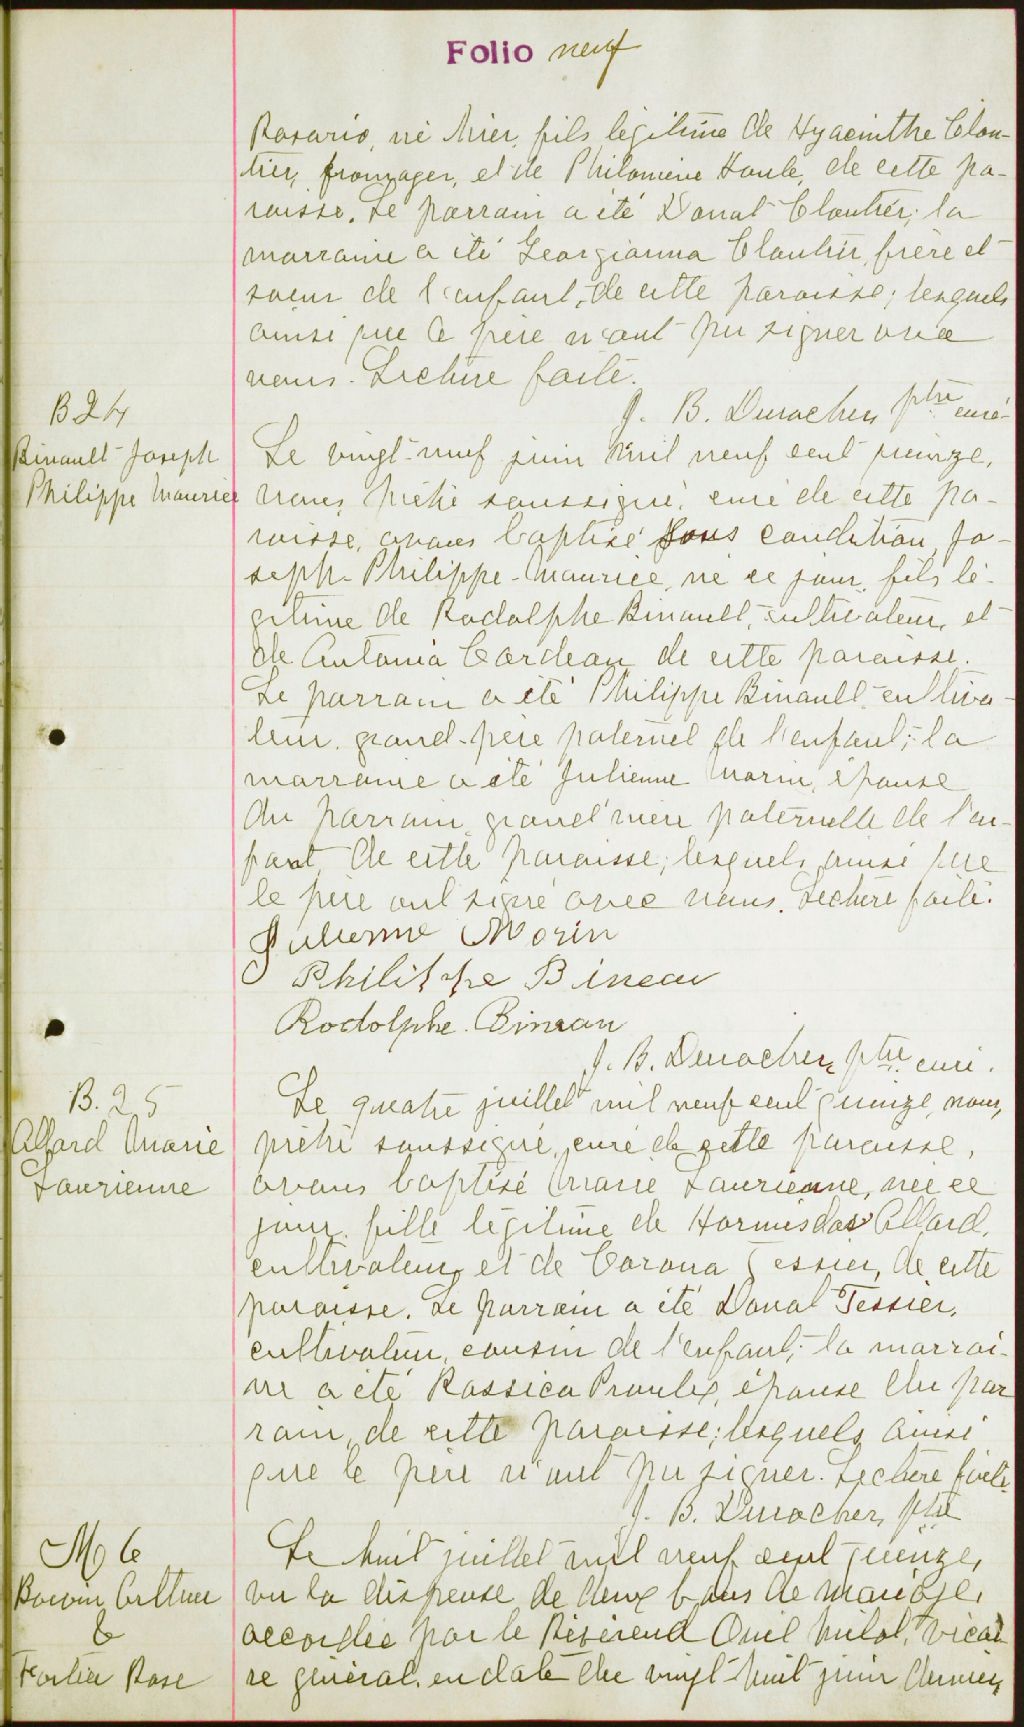 Folio neuf
Rosario, né hier, fils légitime de Hyacinthe Clou-
tier, fromager, et de Philomène Houle, de cette pa-
roisse. Le parrain a été Donat Cloutier; la
marraine a été Georgianna Cloutier, frère et
soeur de l'enfant, de cette paroisse; lesquels
ainsi que le père n'ont pu signer avec
nous. Lecture faite.
J. B. Durocher, ptre curé
B 24
Binault Joseph
Philippe Maurice
Le vingt-neuf juin mil neuf cent quinze,
nous, prêtre soussigné, curé de cette pa-
roisse, avons baptisé sous condition, Jo-
seph-Philippe-Maurice, né ce jour, fils lé-
gitime de Rodolphe Binault, cultivateur, et
de Antonia Cardeau de cette paroisse.
Le parrain a été Philippe Binault, cultiva-
teur, grand-père paternel de l'enfant; la
marraine a été Julienne Morin, épouse
du parrain, grand'mère paternelle de l'en-
fant, de cette paroisse; lesquels ainsi que
le père ont signé avec nous. Lecture faite.
Julienne Morin
Philippe Bineau
Rodolphe Bineau
J. B. Durocher, ptre curé.
B. 25
Allard Marie
Laurienne
Le quatre juillet mil neuf cent quinze, nous,
prêtre soussigné, curé de cette paroisse,
avons baptisé Marie Laurienne, née ce
jour, fille légitime de Hormisdas Allard,
cultivateur, et de Corona Tessier, de cette
paroisse. Le parrain a été Donat Tessier,
cultivateur, cousin de l'enfant; la marrai-
ne a été Rossica Proulx, épouse du par
rain, de cette paroisse; lesquels ainsi
que le père n'ont pu signer. Lecture faite.
J. B. Durocher, ptre
M 6
Boivin
&
Fortier Rose
Le huit juillet mil neuf cent quinze,
vu la dispense de deux bans de mariage,
accordée par le Révérend Onil Milot, vicai
re général, en date du vingt-huit juin dernier,